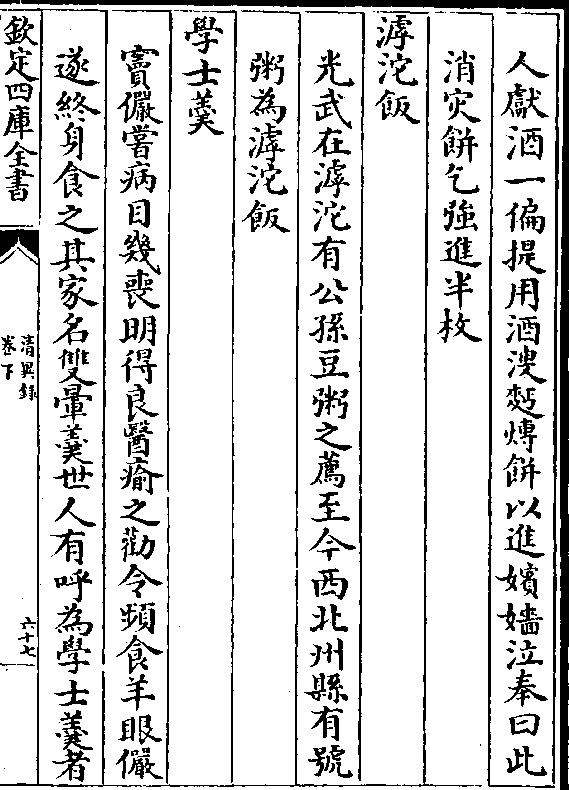 人獻酒一偏提用酒溲麪㷛餅以進嬪嬙泣奉曰此
消灾餅乞強進半枚
滹沱飯
光武在滹沱有公孫豆粥之薦至今西北州縣有號
粥為滹沱飯
學士羹
竇儼嘗病目幾喪明得良醫瘉之勸令頻食羊眼儼
遂終身食之其家名雙暈羹世人有呼為學士羹者
欽定四庫全書
清異録
卷下
六十七